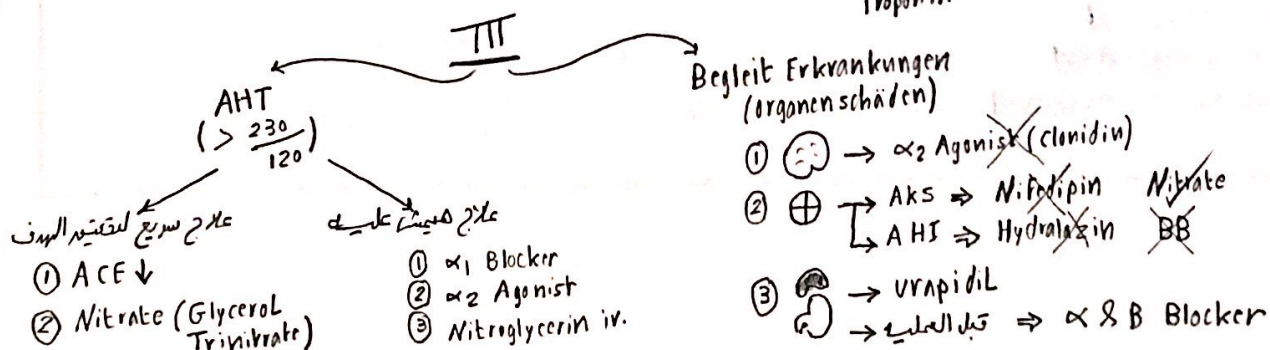 III
AHT
( > 230/120 )
علاج سريع لتقتيد الهدف
① ACE ↓
② Nitrate (Glycerol
Trinitrate)
علاج هيمشا عليه
① α1 Blocker
② α2 Agonist
③ Nitroglycerin iv.
Begleit Erkrankungen
(organenschäden)
① → α2 Agonist (clonidin)
② → Aks ⇒ Nifedipin Nitrate
→ AHI ⇒ Hydralazin BB
③ → urapidil
→ قبل العملية ⇒ α & B Blocker